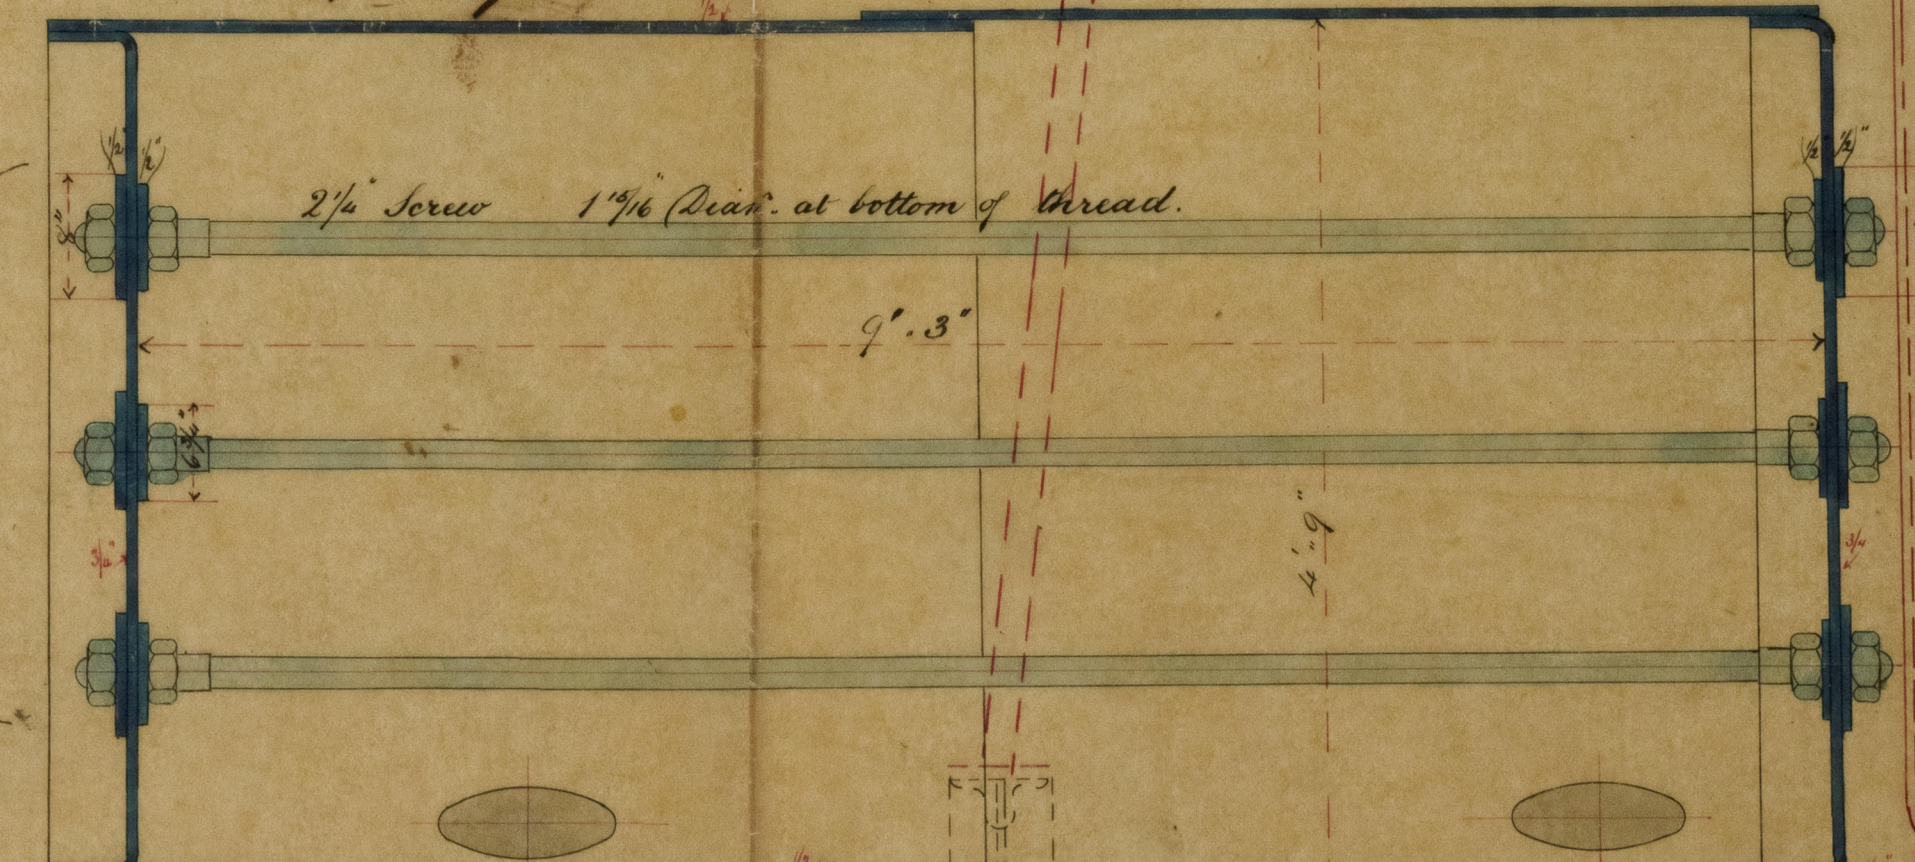 1/2
1/2" 1/2"
1/2 1/2"
2 1/4" Screw 1 15/16" Diamr. at bottom of thread.
8"
9'. 3"
6 3/4"
4'. 9"
3/4"
3/4